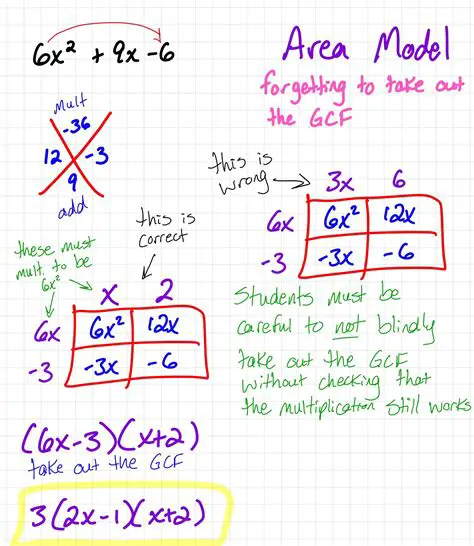 6x² + 9x - 6
Area Model
forgetting to take out
the GCF
mult
-36
12 -3
9
add
this is
wrong
3x 6
6x 6x² 12x
-3 -3x -6
this is
correct
these must
mult. to be
6x²
x 2
6x 6x² 12x
-3 -3x -6
Students must be
careful to not blindly
take out the GCF
without checking that
the multiplication still works
(6x-3)(x+2)
take out the GCF
3(2x-1)(x+2)